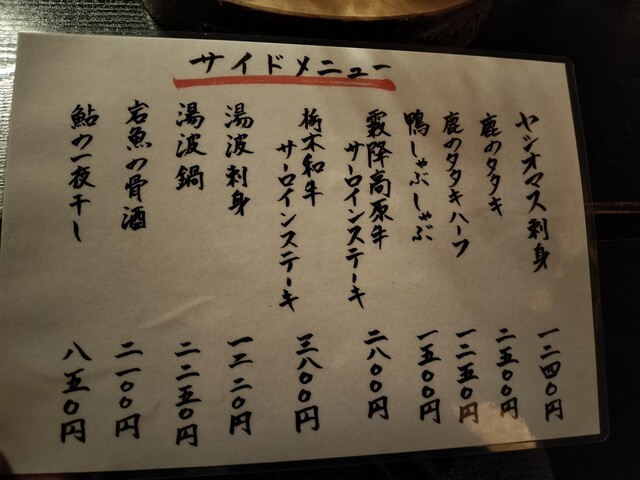 サイドメニュー
ヤシオマス刺身 一二四〇円
鹿のタタキ 二五〇〇円
鹿のタタキハーフ 一二五〇円
鴨しゃぶしゃぶ 一五〇〇円
霧降高原牛
サーロインステーキ 二八〇〇円
栃木和牛
サーロインステーキ 三八〇〇円
湯波刺身 一三二〇円
湯波鍋 二二五〇円
岩魚の骨酒 二一〇〇円
鮎の一夜干し 八五〇円